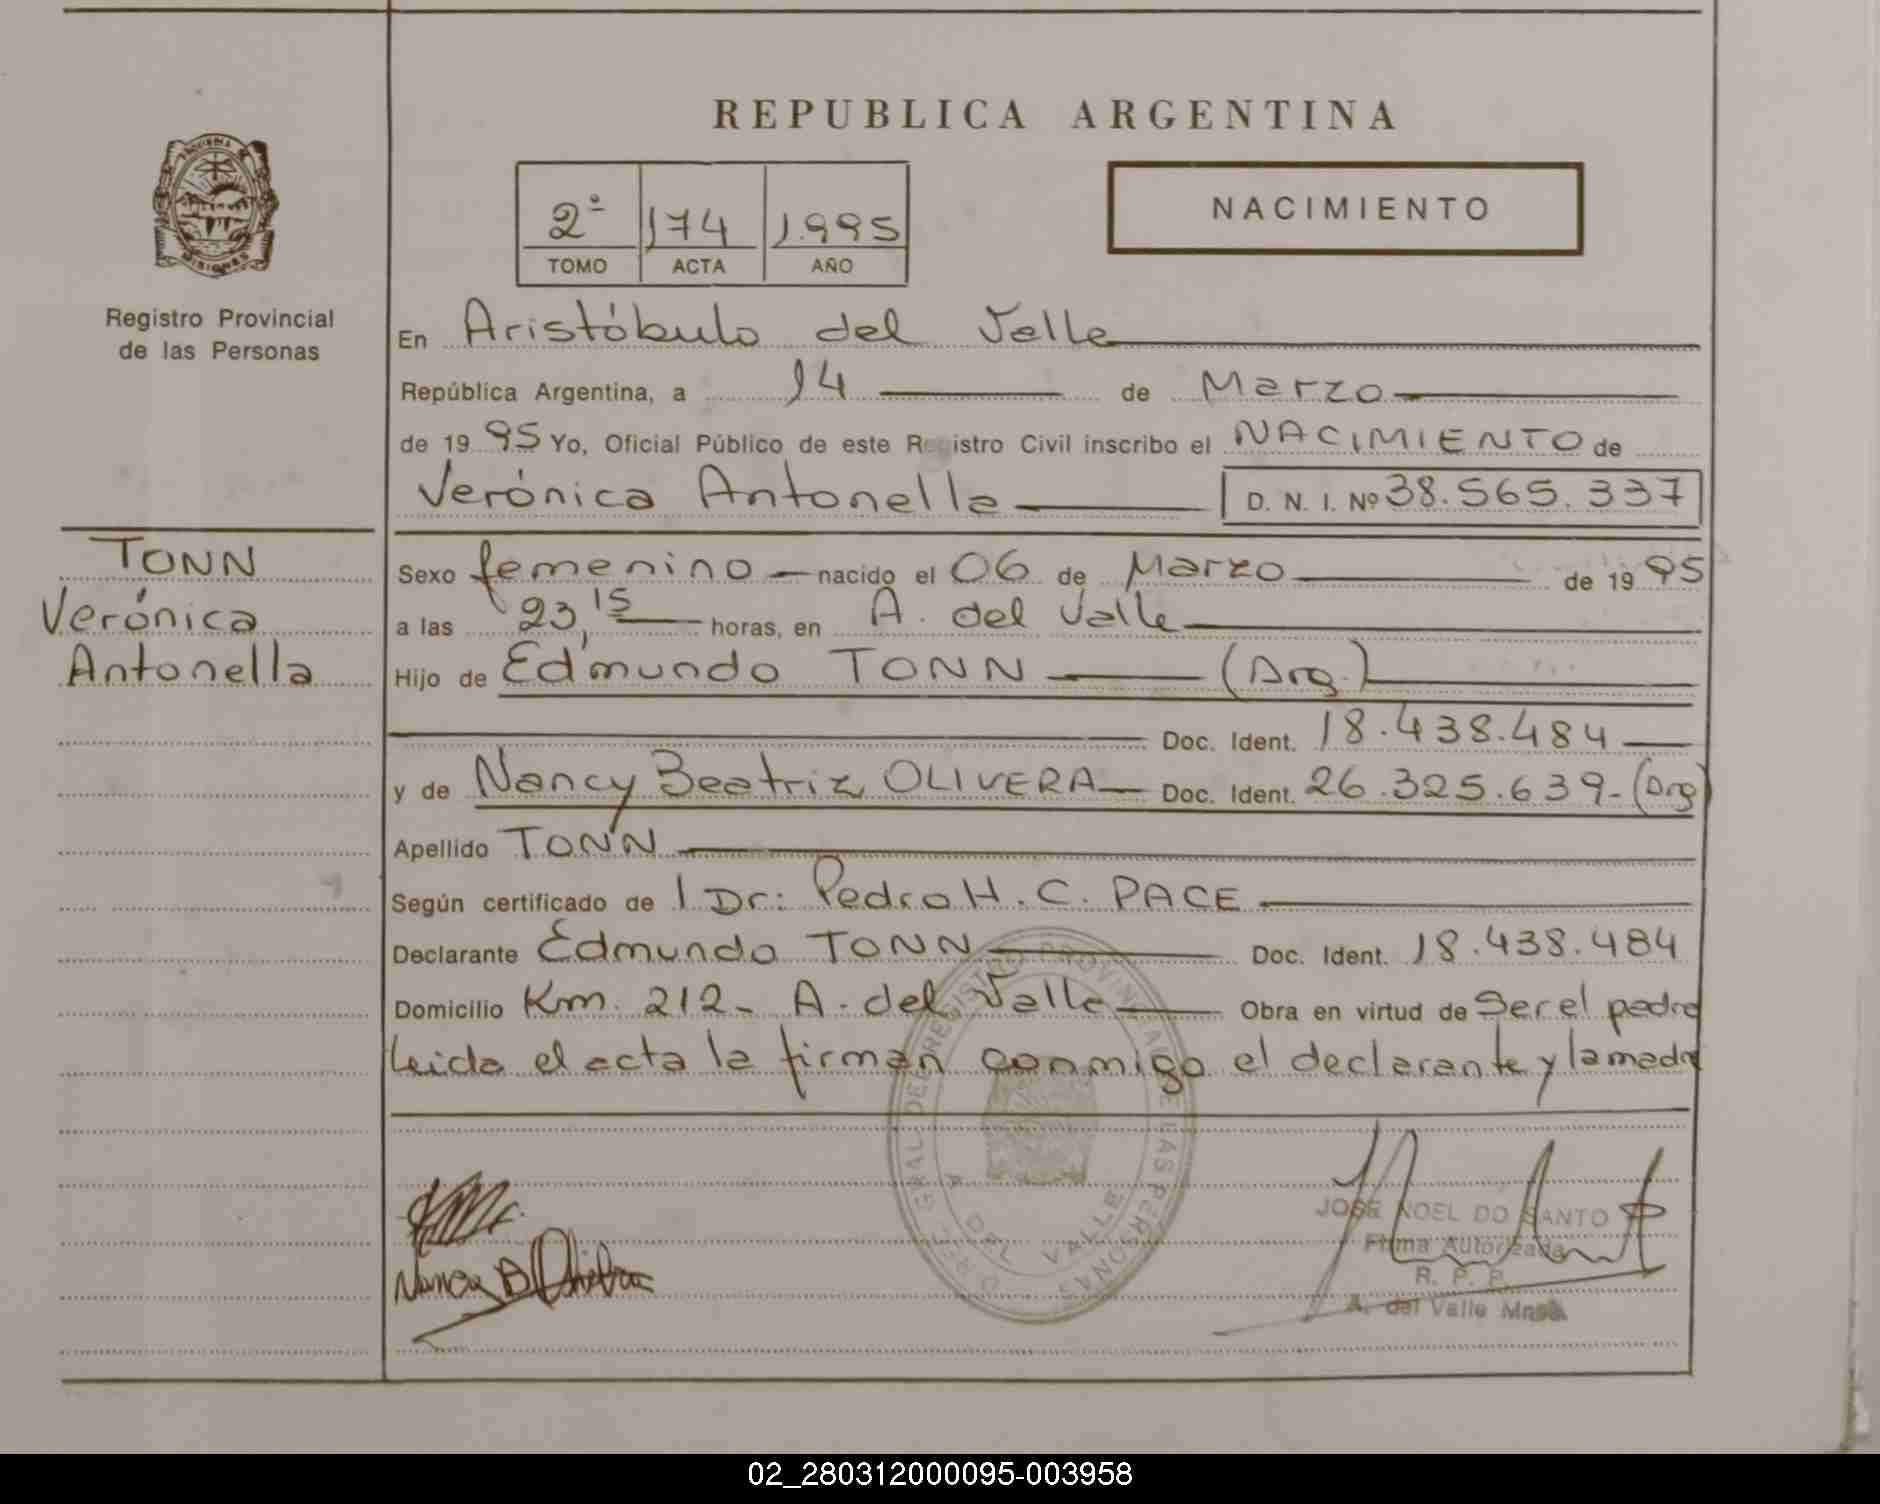 REPUBLICA ARGENTINA
PROVINCIA DE
MISIONES
Registro Provincial
de las Personas
2º 174 1.995
TOMO ACTA AÑO
NACIMIENTO
En Aristóbulo del Valle
República Argentina, a 14 de Marzo
de 19 95 Yo, Oficial Público de este Registro Civil inscribo el NACIMIENTO de
Verónica Antonella D. N. I. Nº 38.565.337
TONN
Verónica
Antonella
Sexo femenino nacido el 06 de Marzo de 19 95
a las 23,15 horas, en A. del Valle
Hijo de Edmundo TONN (Arg.)
Doc. Ident. 18.438.484
y de Nancy Beatriz OLIVERA Doc. Ident. 26.325.639- (Arg)
Apellido TONN
Según certificado de 1 Dr: Pedro H. C. PACE
Declarante Edmundo TONN Doc. Ident. 18.438.484
Domicilio Km. 212- A. del Valle Obra en virtud de Ser el padre
leida el acta la firman conmigo el declarante y la madre
DIREC. GRAL. DEL REGISTRO PROVINCIAL DE LAS PERSONAS
A. DEL VALLE
Nancy B Olivera
JOSE NOEL DO SANTO
Firma Autorizada
R. P. P.
A. del Valle Mnes.
02_280312000095-003958